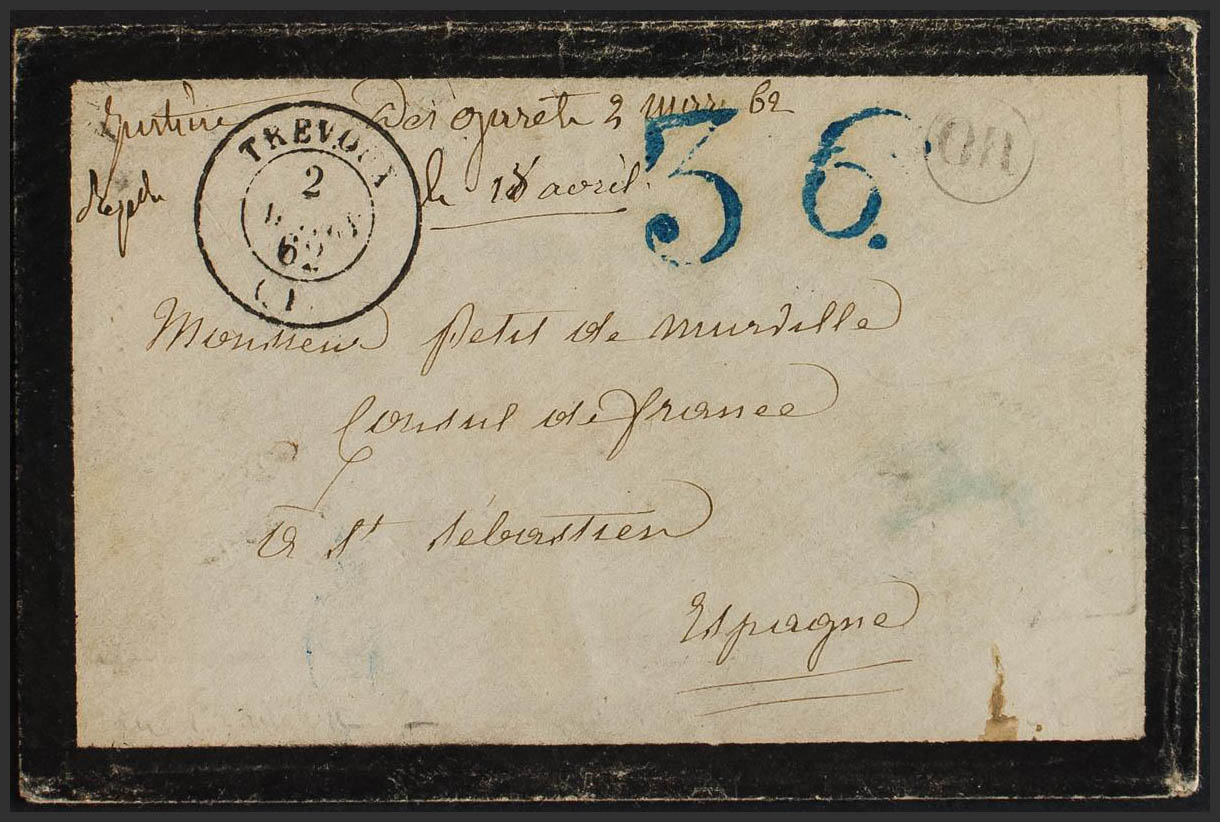 Des garets 2 mars 62
le 18 avril.
TREVOUX
2
MARS
62
(1)
36.
OR
Monsieur Petit de Meurville
Consul de france
à St Sébastien
Espagne